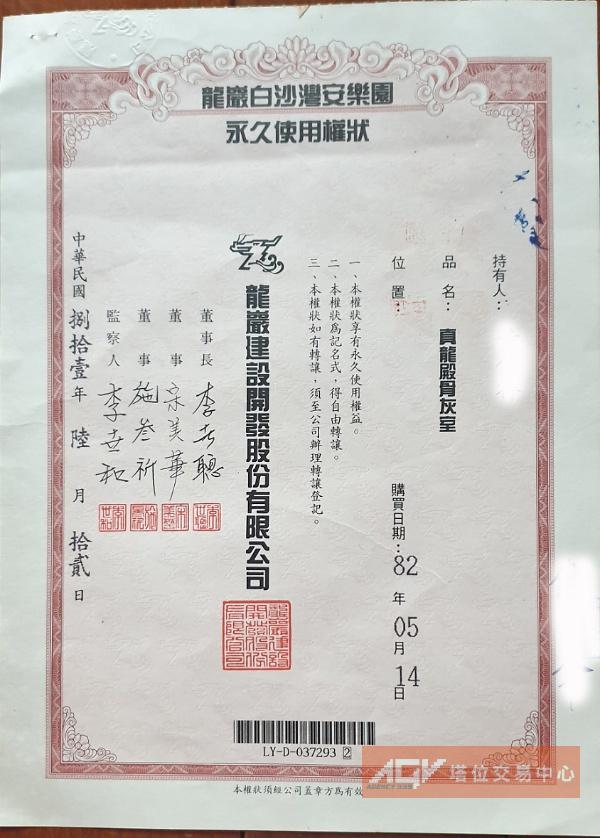 龍巖白沙灣安樂園
永久使用權狀
持有人：
品名：真龍殿骨灰室
位置：
購買日期：82年05月14日
一、本權狀享有永久使用權益。
二、本權狀為記名式，得自由轉讓。
三、本權狀如有轉讓，須至公司辦理轉讓登記。
龍巖建設開發股份有限公司
董事長 李世聰
董事 宋美華
董事 施叄祈
監察人 李世和
中華民國捌拾壹年陸月拾貳日
LY-D-037293 2
本權狀須經公司蓋章方為有效
AGY 塔位交易中心